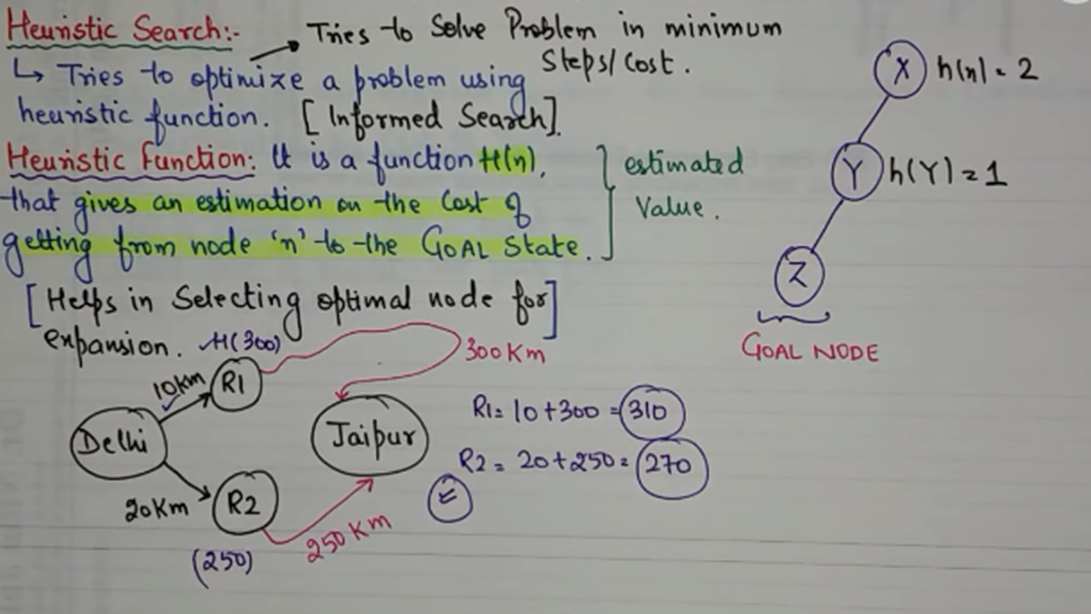 Heuristic Search:-
Tries to Solve Problem in minimum
Steps/Cost.
↳ Tries to optimize a problem using
heuristic function. [Informed Search].
Heuristic Function: It is a function H(n),
that gives an estimation on the Cost of
getting from node 'n' to the GOAL State.
estimated
Value.
[Helps in Selecting optimal node for
expansion.]
X h(n) = 2
Y h(Y) = 1
Z
GOAL NODE
H(300)
300 Km
10Km
R1
Delhi
Jaipur
R1 = 10+300 = 310
R2 = 20+250 = 270
20Km
R2
250 Km
(250)